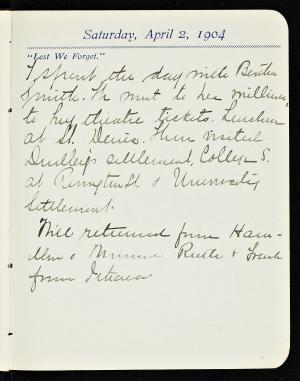 Saturday, April 2, 1904
"Lest We Forget."
I spent the day with
Smith. We went to her milliner,
to buy theatre tickets. Luncheon
at St. Denis. Then visited
settlement, College S.
at Rivington St & University
Settlement.
Will returned from Ham-
& & Frank
from Ithaca.